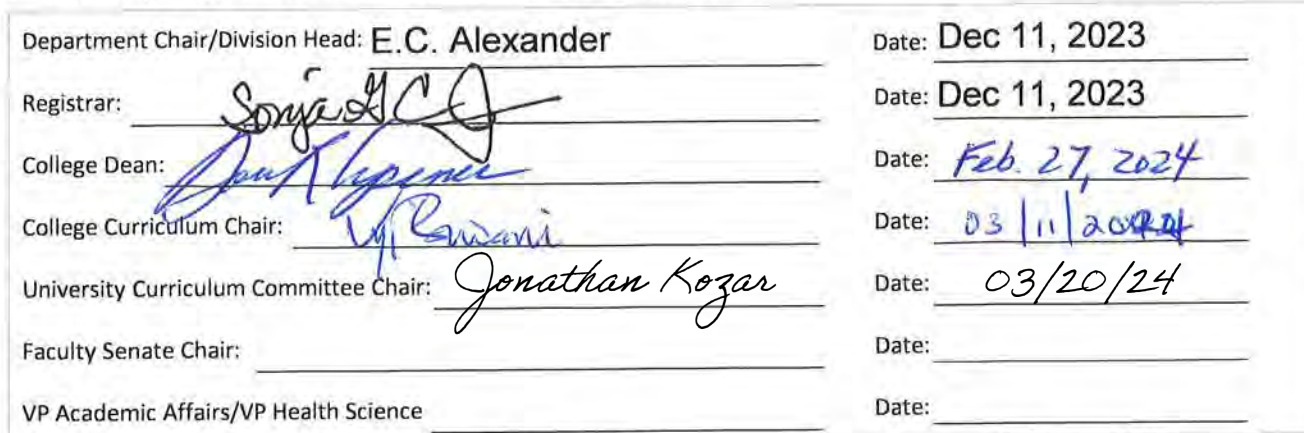 Department Chair/Division Head: E.C. Alexander Date: Dec 11, 2023
Registrar: Sonja G C Date: Dec 11, 2023
College Dean: Date: Feb. 27, 2024
College Curriculum Chair: Date: 03/11/2024
University Curriculum Committee Chair: Jonathan Kozar Date: 03/20/24
Faculty Senate Chair: Date:
VP Academic Affairs/VP Health Science Date: